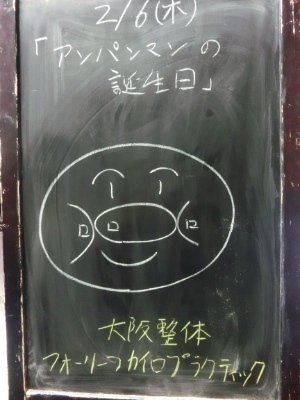 2/6(木)
「アンパンマンの
誕生日」
大阪整体
フォーリーフカイロプラクティック